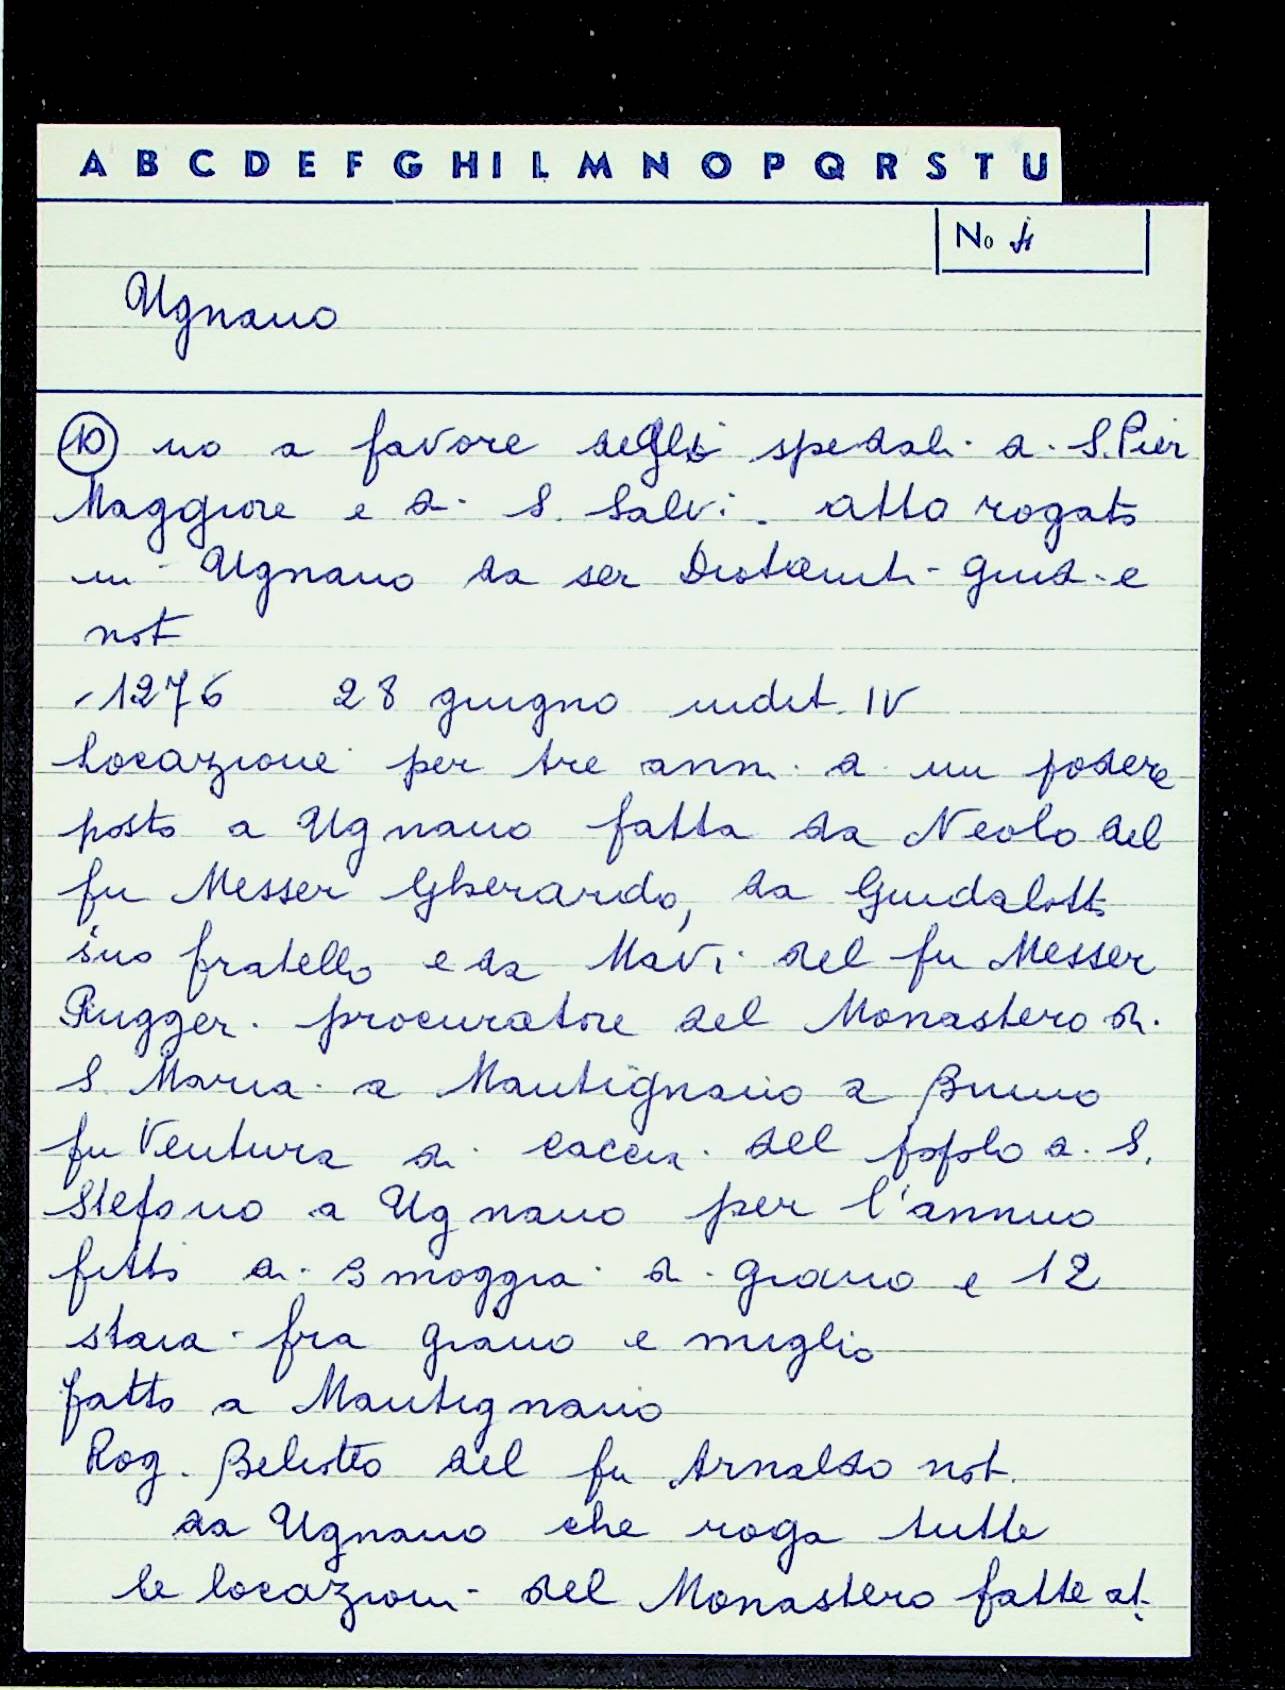 A B C D E F G H I L M N O P Q R S T U
No 4
Ugnano
10 no a favore degli spedali di S. Pier
Maggiore e di S. Salvi. atto rogato
in Ugnano da ser giud. e
not
1276 28 giugno indit. IV
Locazione per tre anni di un podere
posto a Ugnano fatta da Neolo del
fu Messer Gherardo, da Guidalotti
suo fratello e da del fu Messer
Rugger. procuratore del Monastero di
S. Maria a Mantignano a Bruno
fu Ventura di caccia. del popolo di S.
Stefano a Ugnano per l'annuo
fitto di 3 moggia di grano e 12
staia fra grano e miglio
fatto a Mantignano
Rog. Beliotto del fu Arnaldo not.
da Ugnano che roga tutte
le locazioni del Monastero fatte at.